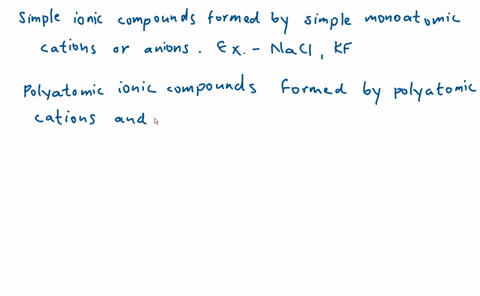 Simple ionic compounds formed by simple monoatomic
cations or anions. Ex. - NaCl, KF
Polyatomic ionic compounds formed by polyatomic
cations and